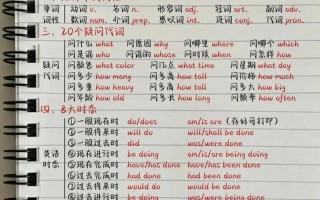 单词 动词 v. 名词 n. 形容词 adj. 冠词 art. 副词 adv.
词性 数词 num. 介词 prep. 感叹词 int. 连词 conj. 代词 pron.
三、20个疑问代词
问什么 what 问原因 why 问哪里 where 问哪个 which
问是谁 who 问谁的 whose 问时候 when 问怎样 how
疑问 问颜色 what color 问几点 what time 问星期 what day
代词 问多少 how many 问多高 how tall 问多长 how long
问多少 how much 问多高 how tall 问多大 how big
问年龄 how old 问多长 how long 问频率 how often
四、8大时态
①一般现在时 do/does am/is are
②一般将来时 will do will/shall be done
③一般过去时 did was/were done
英语 ④现在进行时 be doing am/is/are being done
时态 ⑤现在完成时 have/has done have/has been done
⑥过去完成时 had done had been done
⑦过去将来时 would do would be done
⑧过去进行时 be doing were being done